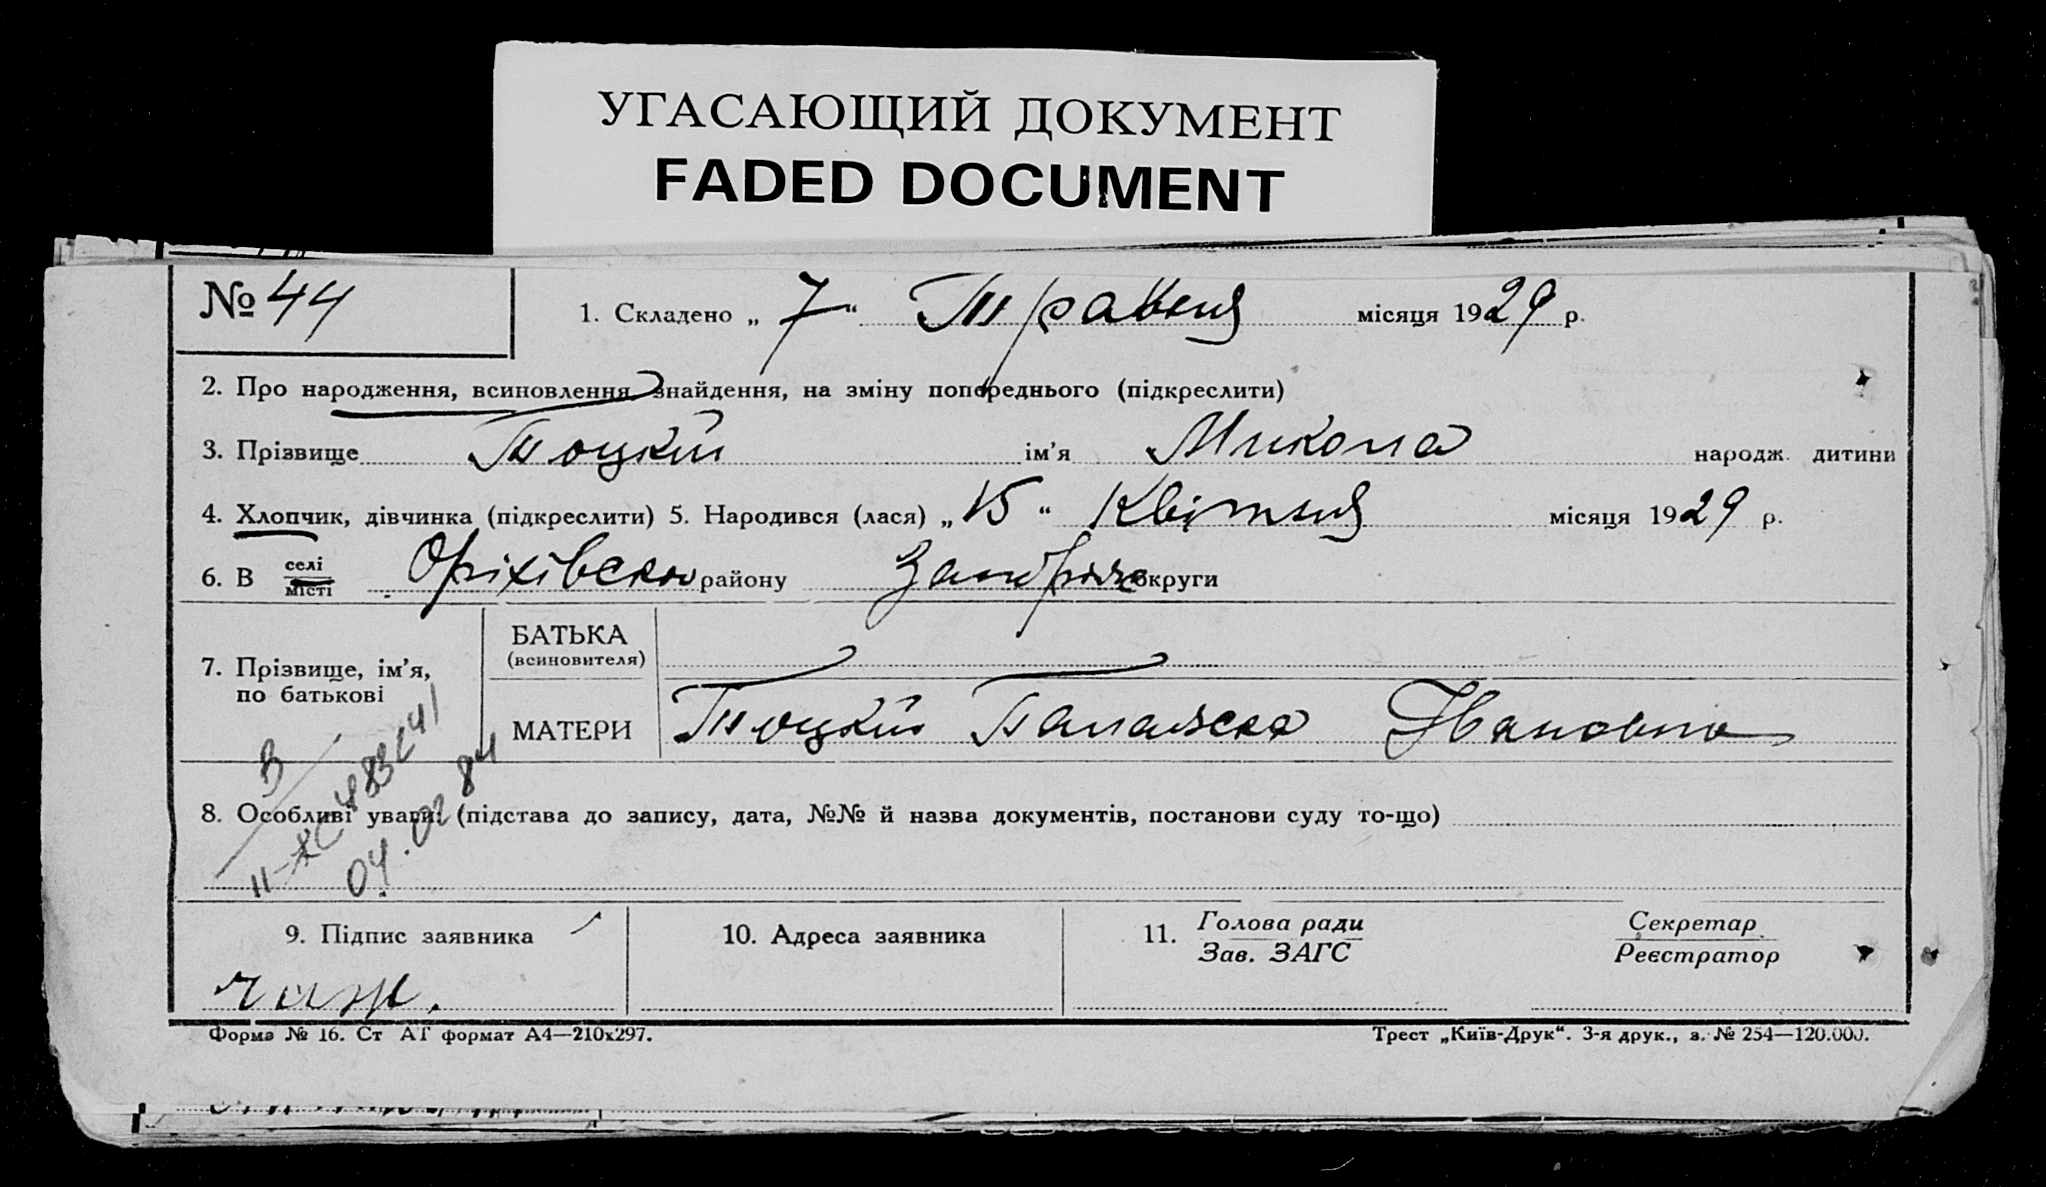 УГАСАЮЩИЙ ДОКУМЕНТ
FADED DOCUMENT
№ 44
1. Складено „ 7 “ Травня місяця 1929 р.
2. Про народження, всиновлення, знайдення, на зміну попереднього (підкреслити)
3. Прізвище Тоцкий ім'я Микола народж. дитини
4. Хлопчик, дівчинка (підкреслити) 5. Народився (лася) „ 15 “ Квітня місяця 1929 р.
6. В селі місті Оріхівсько району округи
7. Прізвище, ім'я, по батькові
БАТЬКА
(всиновителя)
МАТЕРИ Тоцкий Палажка Івановна
В
11-ЖС 483641
04.02 84
8. Особливі уваги: (підстава до запису, дата, №№ й назва документів, постанови суду то-що)
9. Підпис заявника
10. Адреса заявника
11. Голова ради Секретар
Зав. ЗАГС Реєстратор
Форма № 16. Ст АГ формат А4—210х297.
Трест „Київ-Друк“. 3-я друк., з. № 254—120.000.